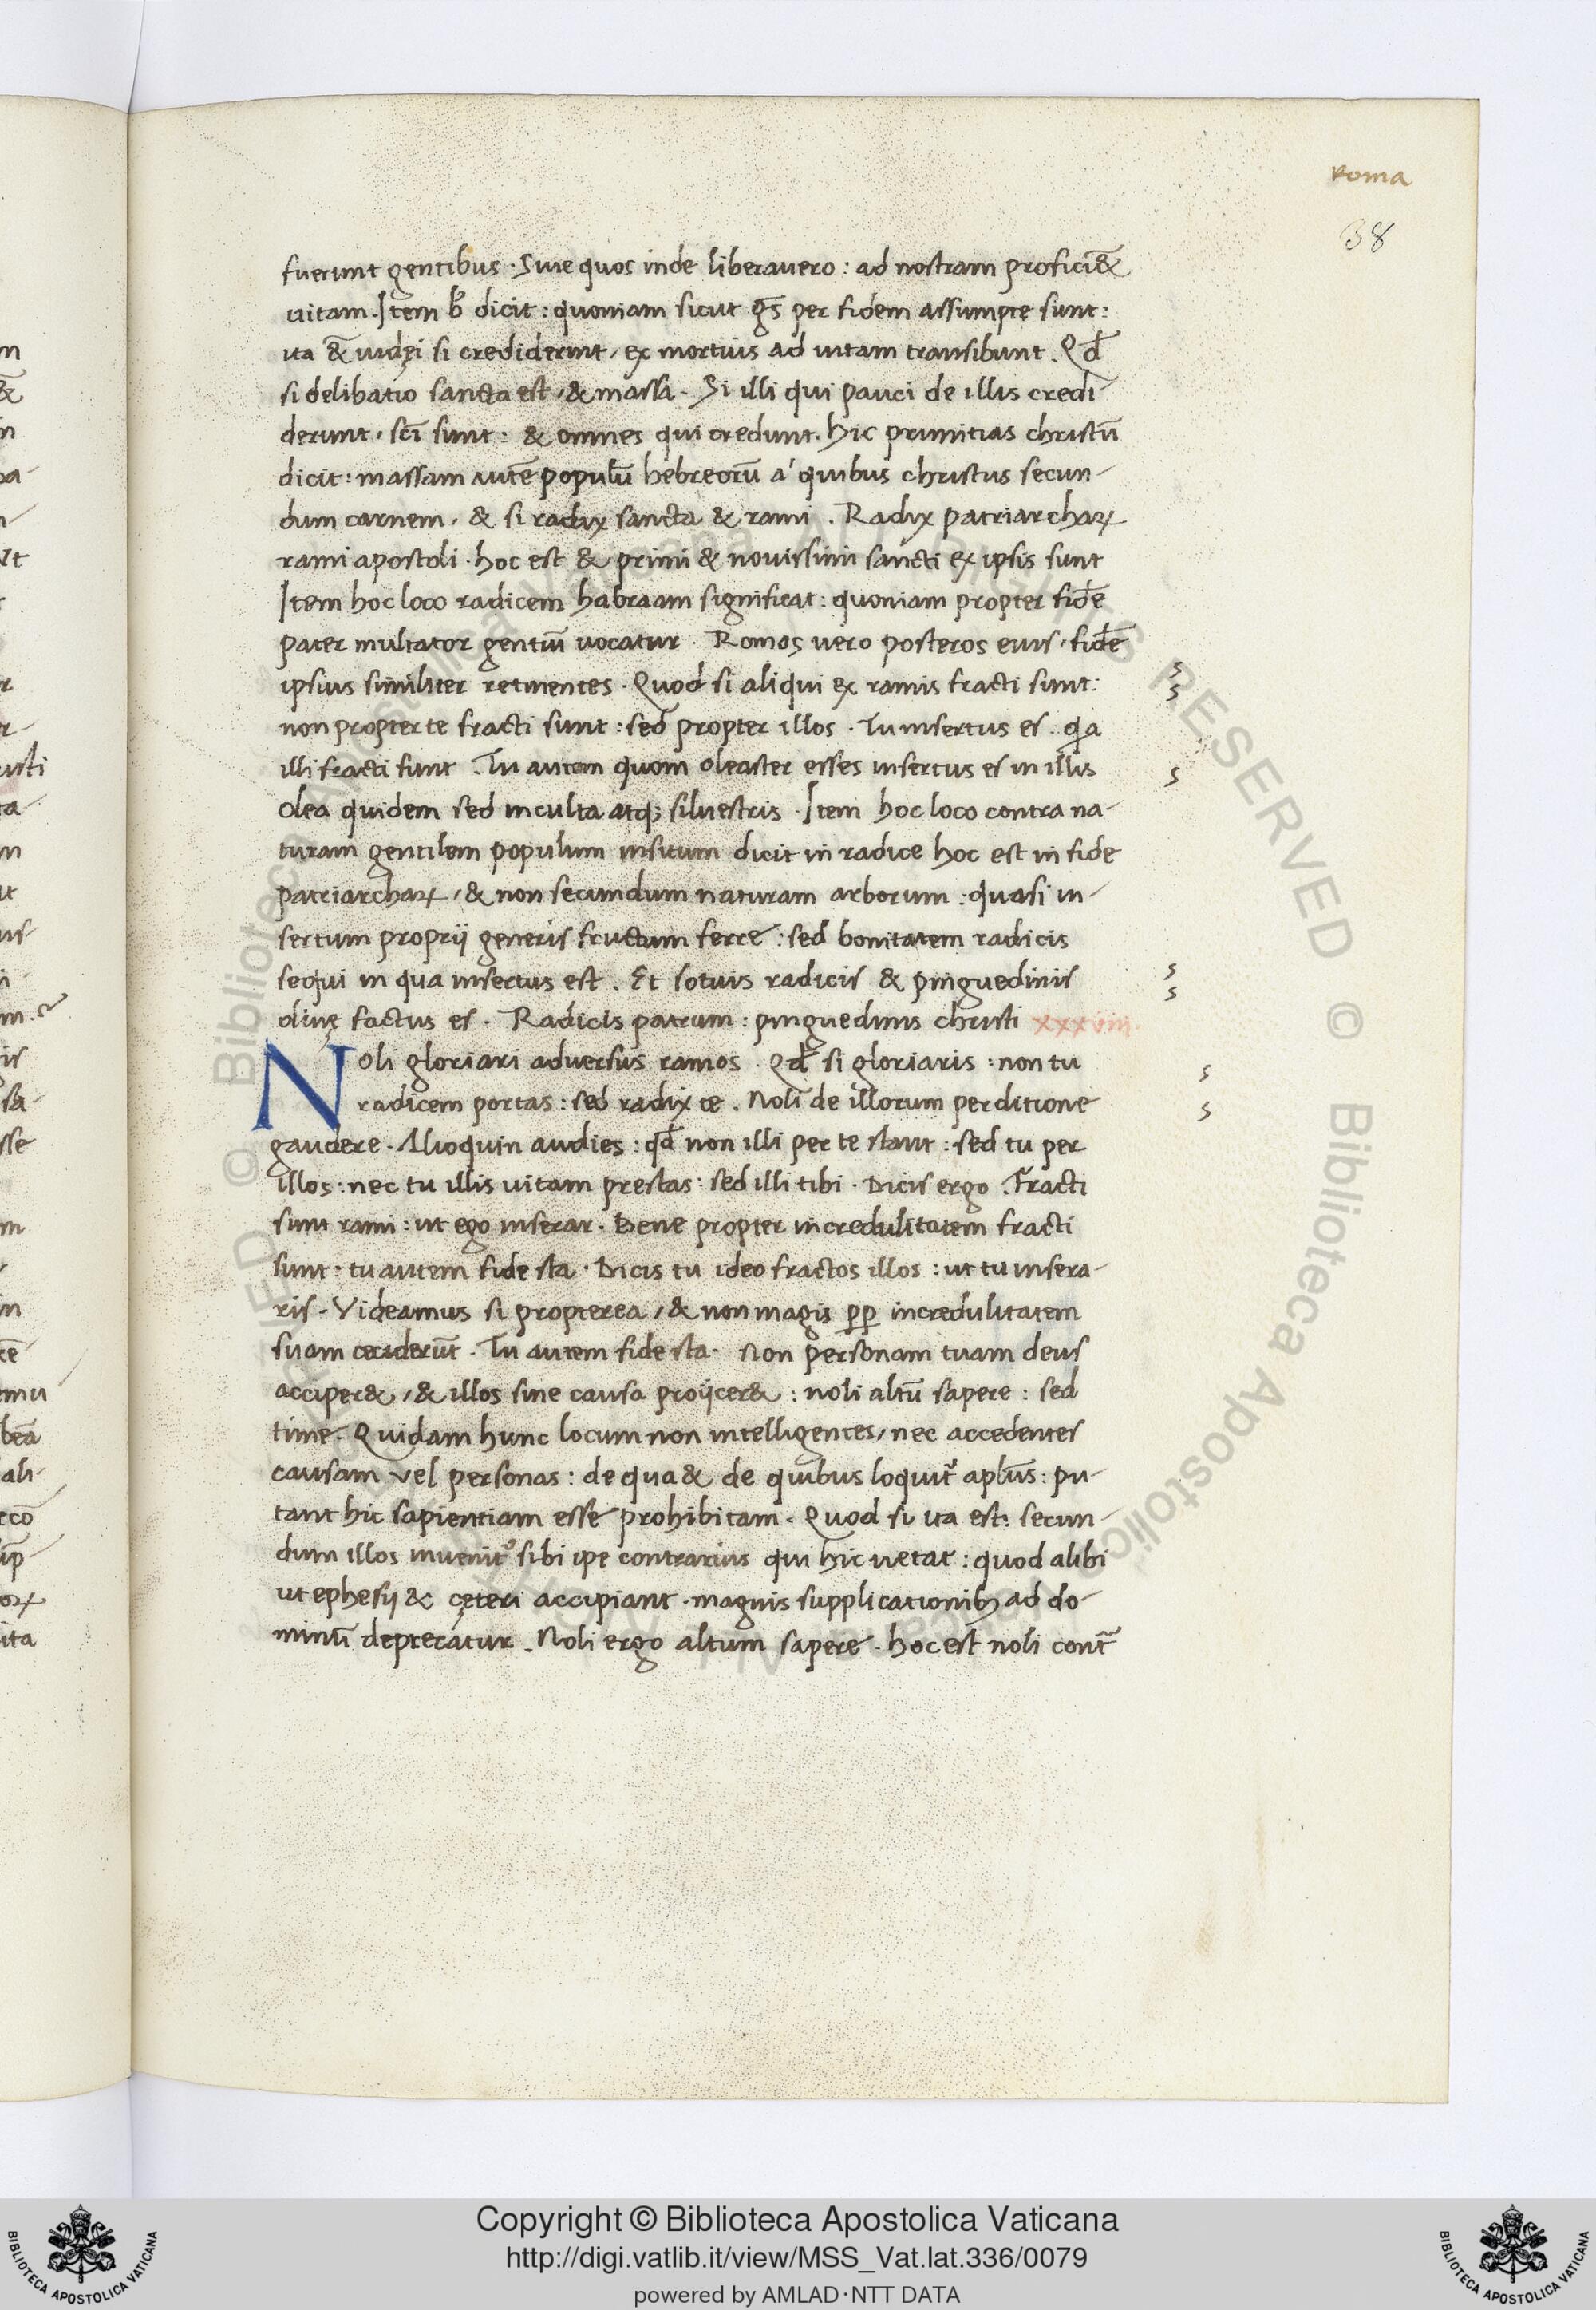 Roma
38
fuerunt gentibus · Siue quos inde liberauero : ad nostram profici&
uitam. Item b̾ dicit : quoniam sicut gs̄ per fidem assumpte sunt :
ita &̄ iudęi si crediderint, ex mortuis ad uitam transibunt . Qđ
si delibatio sancta est, & massa . Si illi qui pauci de illis credi-
derunt, sc̄i sunt : & omnes qui credunt. hic primitias christū
dicit : massam autē populū hebreorū a' quibus christus secun-
dum carnem, & si radix sancta & rami . Radix patriarchaꝝ
rami apostoli · hoc est & primi & nouissimi sancti ex ipsis sunt
Item hoc loco radicem habraam significat : quoniam propter fidē
pater multator gentiū uocatur . Romos uero posteros eius, fidē
ipsius similiter retinentes . Quod si aliqui ex ramis fracti sunt :
non propter te fracti sunt : sed propter illos . Tu insertus es . qa
illi fracti sunt . Tu autem quom oleaster esses insertus es in illis
Olea quidem sed inculta atq; siluestris . Item hoc loco contra na-
turam gentilem populum insitum dicit in radice hoc est in fide
patriarchaꝝ, & non secundum naturam arborum : quasi in-
sertum proprij generis fructum ferre : sed bonitatem radicis
sequi in qua insertus est . Et sotius radicis & pinguedinis
oliuę factus es . Radicis patrum : pinguedinis christi xxxviii
Noli gloriari aduersus ramos . Qđ si gloriaris : non tu
radicem portas : sed radix te . Noli de illorum perditione
gaudere . Alioquin audies : qđ non illi per te stant : sed tu per
illos : nec tu illis uitam prestas : sed illi tibi . Dicis ergo . Fracti
sunt rami : ut ego inserar . Bene propter incredulitatem fracti
sunt : tu autem fide sta . Dicis tu ideo fractos illos : ut tu insera-
ris . Videamus si propterea, & non magis ꝓꝑ incredulitatem
suam ceciderūt . Tu autem fide sta . Non personam tuam deus
acciper&, & illos sine causa proijcer& : noli altū sapere : sed
time . Quidam hunc locum non intelligentes, nec accedentes
causam vel personas : de qua & de quibus loquit᷑ aplūs : pu-
tant hic sapientiam esse prohibitam . Quod si ita est : secun-
dum illos inuenit᷑ sibi ipe contrarius qui hic uetat : quod alibi
ut ephesij & cęteri accipiant . magnis supplicationibꝫ ad do-
minū deprecatur . Noli ergo altum sapere . hoc est noli cont̃
s
s
s
s
s
s
s
Copyright © Biblioteca Apostolica Vaticana
http://digi.vatlib.it/view/MSS_Vat.lat.336/0079
powered by AMLAD·NTT DATA
BIBLIOTECA APOSTOLICA VATICANA
BIBLIOTECA APOSTOLICA VATICANA